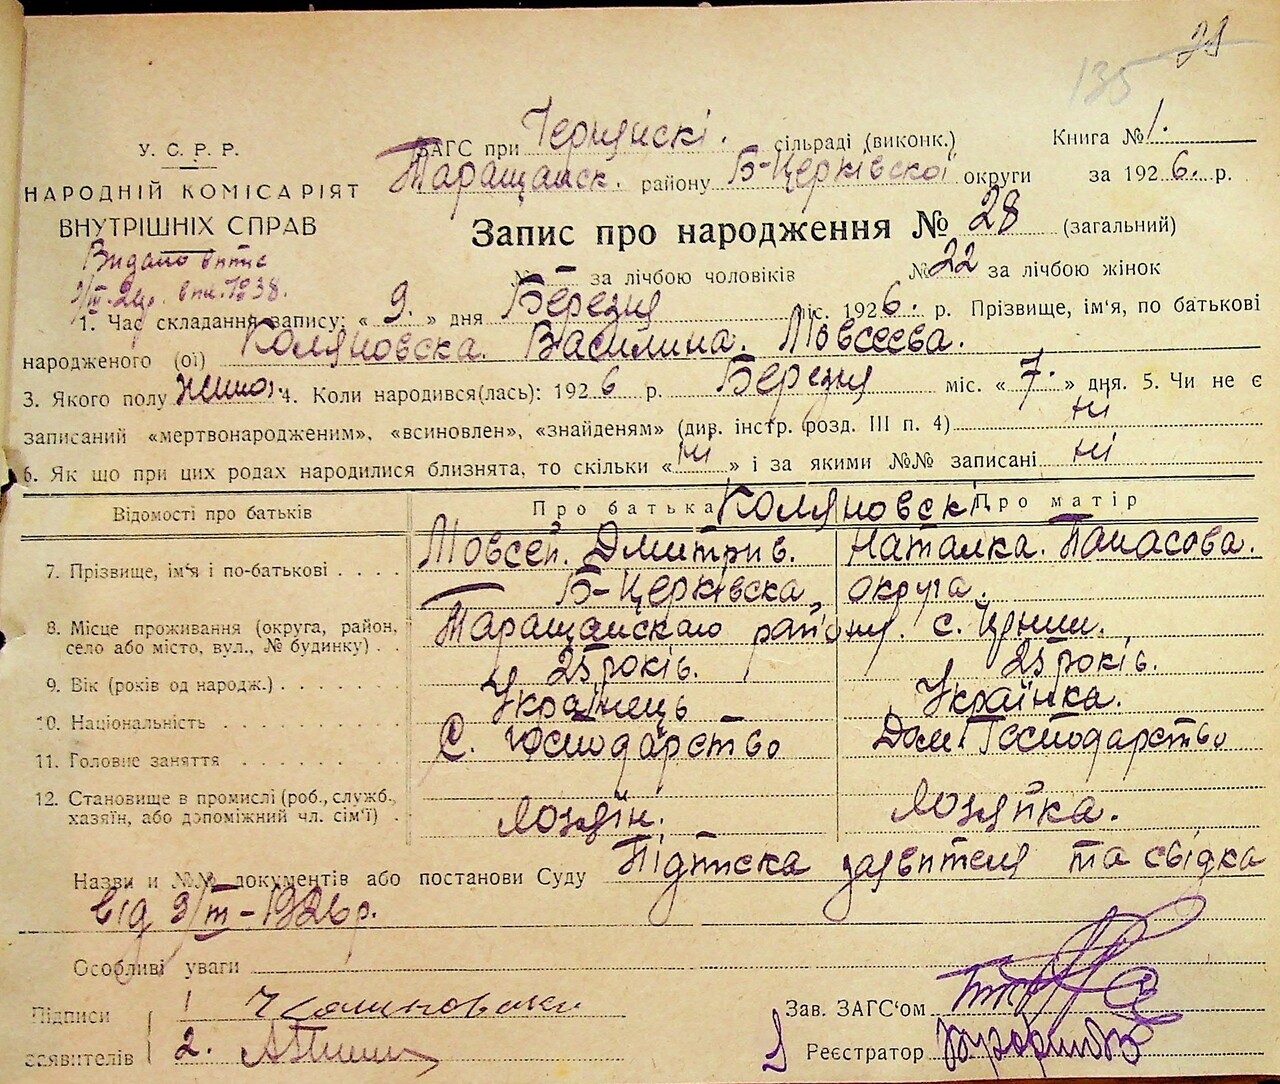 21
135
У. С. Р. Р.
НАРОДНІЙ КОМІСАРІЯТ
ВНУТРІШНІХ СПРАВ
ЗАГС при сільраді (виконк.) Книга № 1.
Таращанск. району Б-Церківської округи за 1926. р.
Запис про народження № 28 (загальний)
Видано
№ – за лічбою чоловіків № 22 за лічбою жінок
1938.
1. Час складання запису: « 9. » дня Березня міс. 1926. р. Прізвище, ім'я, по батькові
народженого (ої) Коляновска. Василина. Мовсеєва.
3. Якого полу жіноч. 4. Коли народився(лась): 1926 р. Березня міс. « 7. » дня. 5. Чи не є
записаний «мертвонародженим», «всиновлен», «знайденям» (див. інстр. розд. III п. 4) ні
6. Як що при цих родах народилися близнята, то скільки « ні » і за якими №№ записані ні
Відомості про батьків Про батька Коляновскі Про матір
7. Прізвище, ім'я і по-батькові . . . . Мовсей. Дмитрів. Наталка. Панасова.
Б-Церківска округа.
8. Місце проживання (округа, район, село або місто, вул., № будинку) . . Таращанскаго району. с.
9. Вік (років од народж.) . . . . . . . 25 років. 25 років.
10. Національність . . . . . . . . . . Українець Українка.
11. Головне заняття . . . . . . . . . С. господарство Дом. Господарство
12. Становище в промислі (роб., служб., хазяїн, або допоміжний чл. сім'ї) . Хозяїн. Хозяйка.
Назви и №№ документів або постанови Суду Підписка заявителя та свідка
від 9/III – 1926 р.
Особливі уваги
Підписи заявителів
1
2.
Зав. ЗАГС'ом
Реєстратор